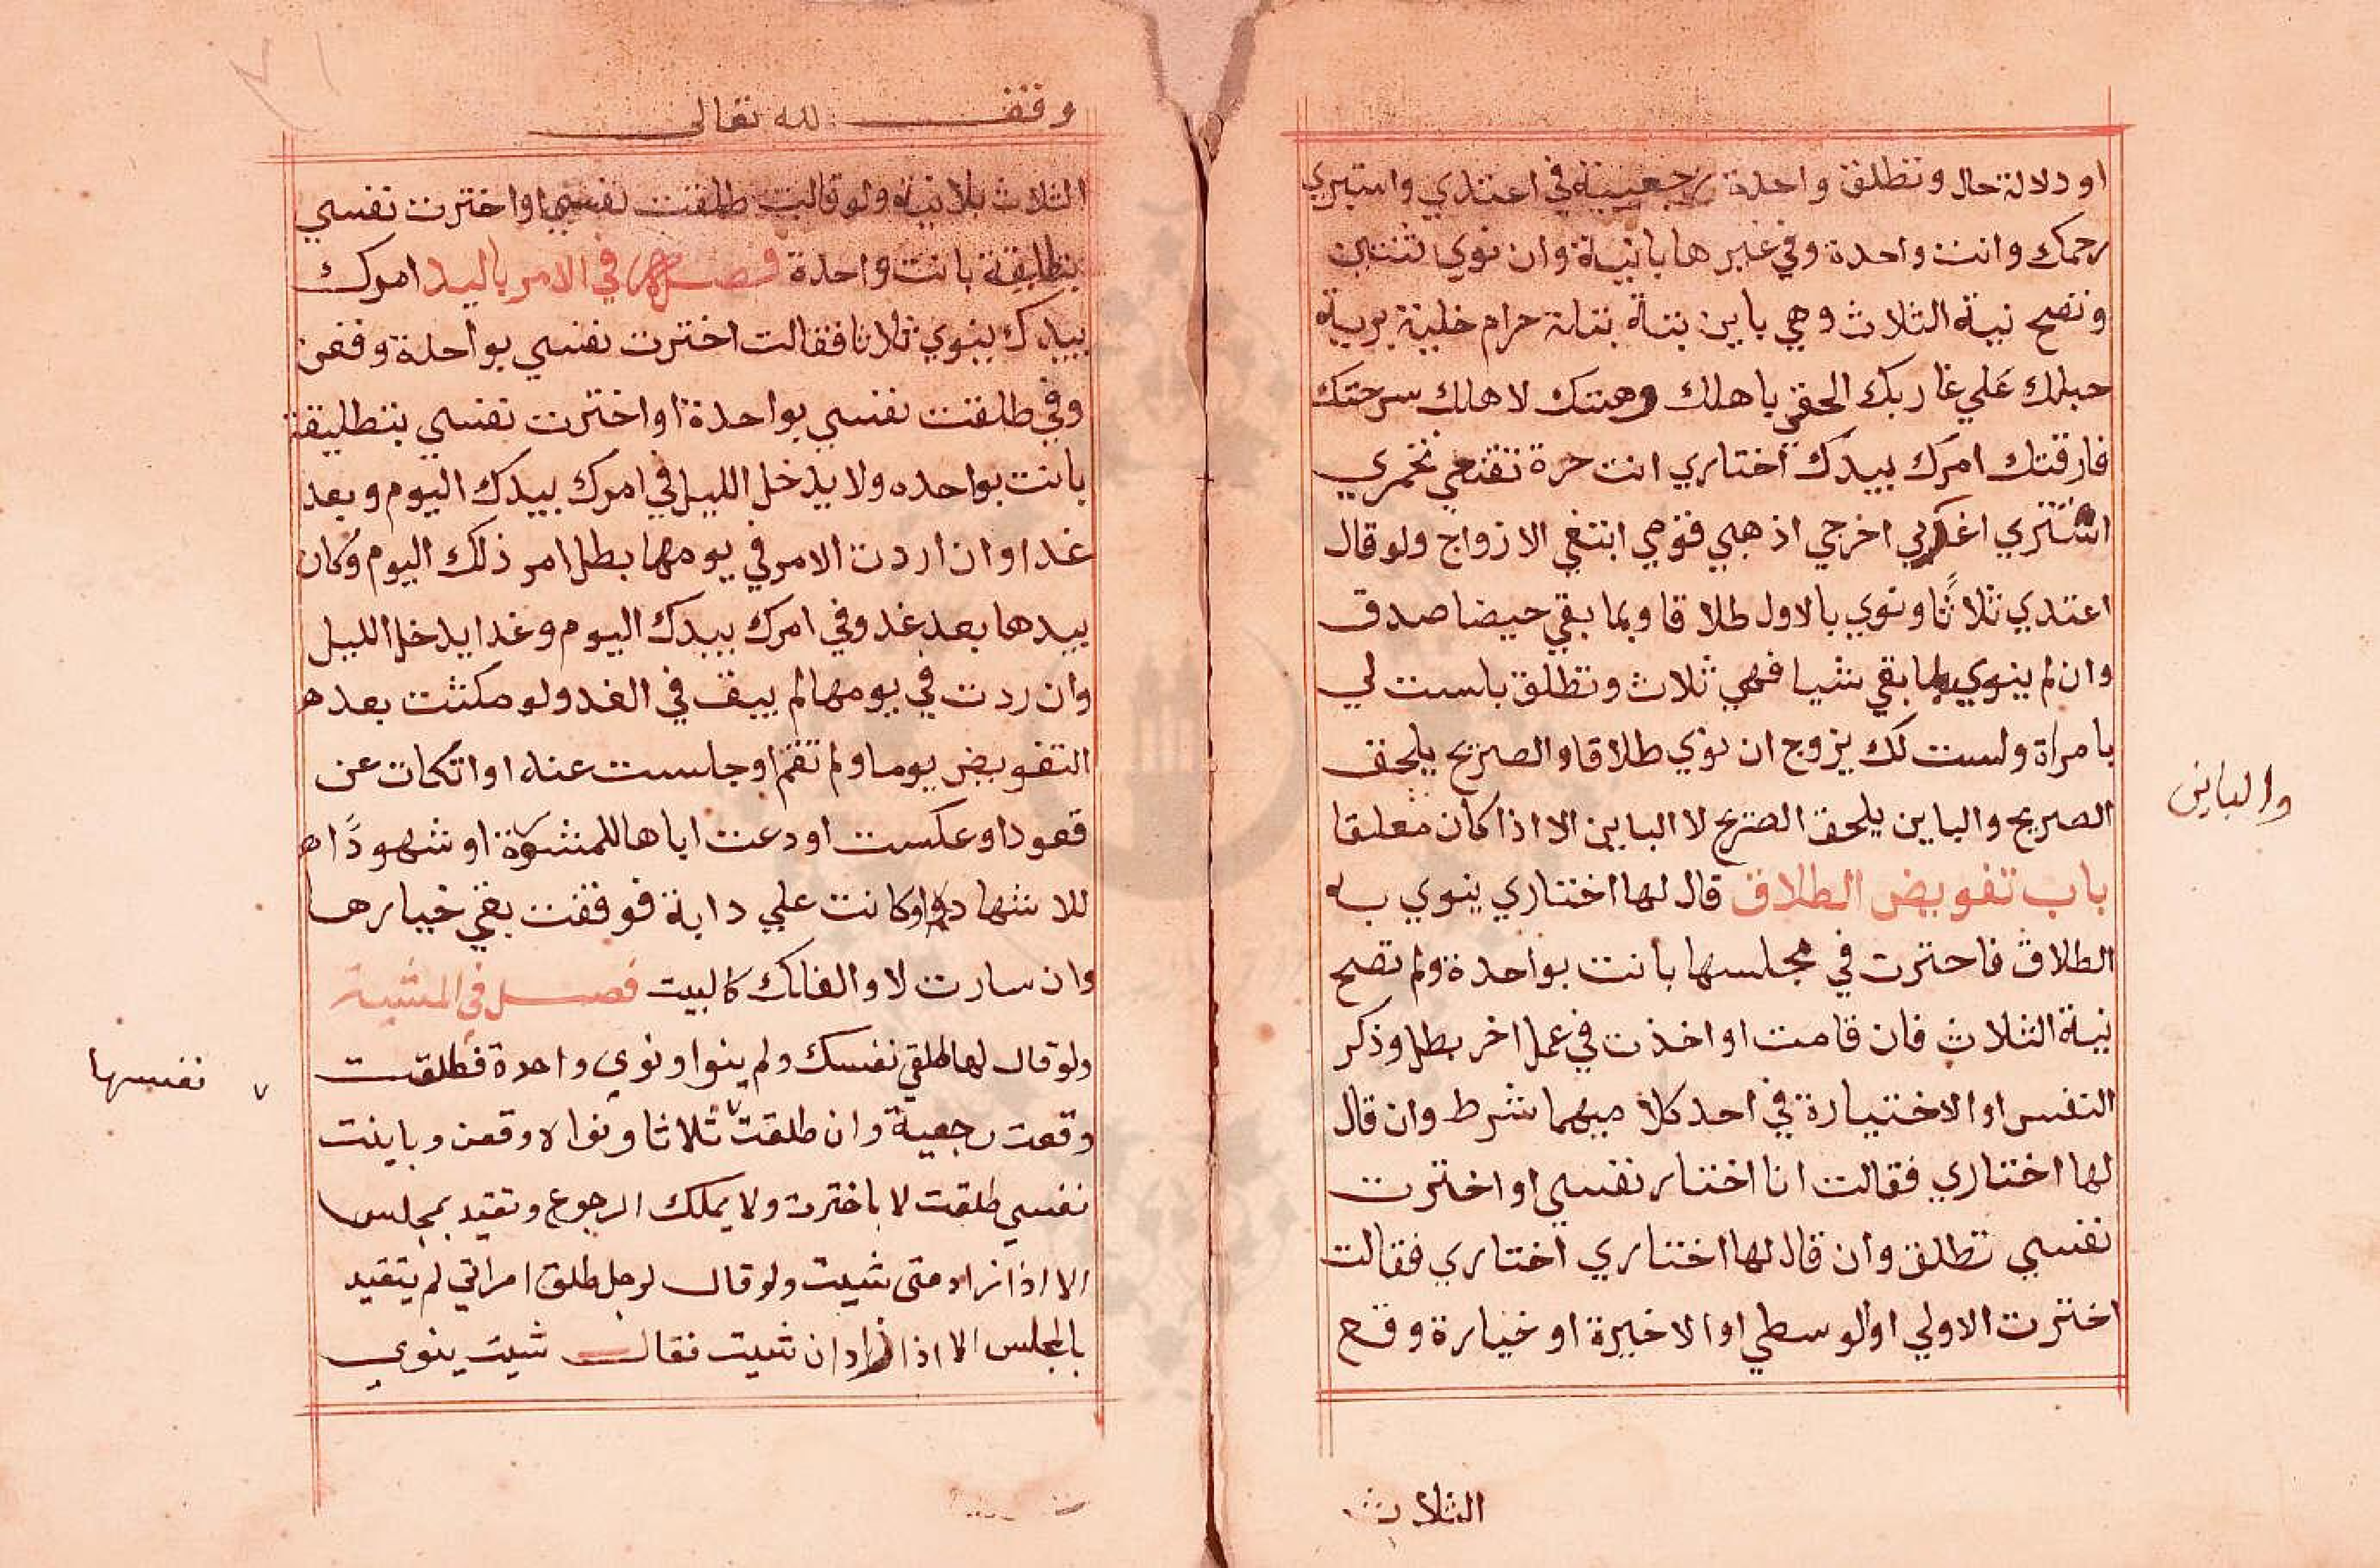 او دلالة حال وتطلق واحدة رجعية في اعتدي واستبري
رحمك وانت واحدة وفي غيرها بانية وان نوي ثنتين
وتصح نية الثلاث وهي باين بتة بتلة حرام خلية برية
حبلك علي غاربك الحقي باهلك وهبتك لاهلك سرحتك
فارقتك امرك بيدك اختاري انت حرة تقنعي تخمري
استتري اغربي اخرجي اذهبي قومي ابتغي الازواج ولو قال
اعتدي ثلاثًا ونوي بالاول طلاقا وبما بقي حيضا صدق
وان لم ينوي بما بقي شيا فهي ثلاث وتطلق بلست لي
بامراة ولست لك بزوج ان نوي طلاقا والصريح يلحق
الصريح والباين يلحق الصريح لا الباين الا اذا كان معلقا
والباين
باب تفويض الطلاق قال لها اختاري ينوي به
الطلاق فاخترت في مجلسها بانت بواحدة ولم تصح
نية الثلاث فان قامت او اخذت في عمل اخر بطل وذكر
النفس او الاختيارة في احد كلاميهما شرط وان قال
لها اختاري فقالت انا اختار نفسي او اخترت
نفسي تطلق وان قال لها اختاري اختاري فقالت
اخترت الاولي او الوسطي او الاخيرة او خيارة وقع
الثلاث
وقف لله تعالى
الثلاث بلا نية ولو قالت طلقت نفسي او اخترت نفسي
بتطليقة بانت واحدة فصل في الامر باليد امرك
بيدك ينوي ثلاثا فقالت اخترت نفسي بواحدة وقعن
وفي طلقت نفسي بواحدة او اخترت نفسي بتطليقة
بانت بواحده ولا يدخل الليل في امرك بيدك اليوم وبعد
غد اوان اردت الامر في يومها بطل امر ذلك اليوم وكان
بيدها بعد غد وفي امرك بيدك اليوم وغدا يدخل الليل
وان ردت في يومها لم يبق في الغد ولو مكثت بعد ه
التفويض يوما ولم تقم او جلست عنه او اتكات عن
قعود او عكست او دعت اباها للمشورة او شهودًا ه
للاشهاد او كانت علي دابة فوقفت بقي خيارها
وان سارت لا والفلك كالبيت فصل في المشية
ولو قال لها طلقي نفسك ولم ينو او نوي واحدة فطلقت
وقعت رجعية وان طلقت ثلاثا ونواه وقعن وباينت
نفسها
نفسي طلقت لا باخترت ولا يملك الرجوع وتقيد بمجلس
الا اذا زاد متى شيت ولو قال لرجل طلق امراتي لم يتقيد
بالمجلس الا اذا زاد ان شيت فقال شيت ينوي